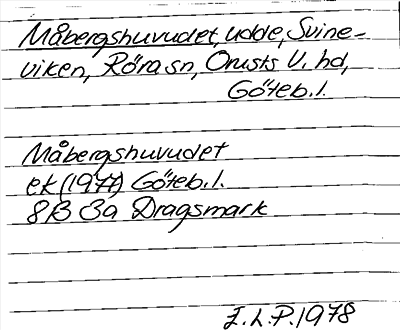 Måbergshuvudet, udde, Svine-
viken, Röra sn, Orusts V. hd,
Göteb. l.
Måbergshuvudet
ek (1977) Göteb. l.
8B 3a Dragsmark
I.L.P. 1978